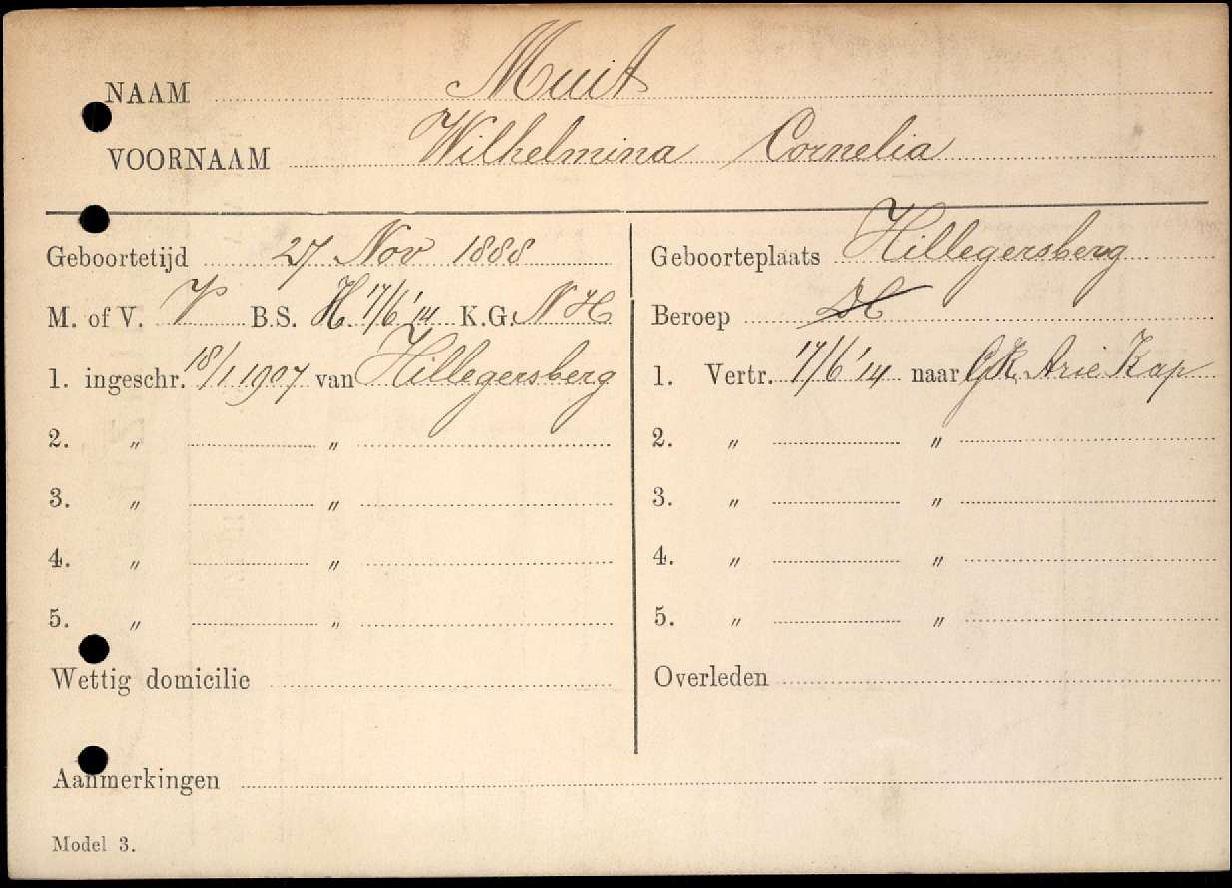 NAAM Muit
VOORNAAM Wilhelmina Cornelia
Geboortetijd 27 Nov 1888
Geboorteplaats Hillegersberg
M. of V. V B.S. H. 17/6 '14 K.G. NH
Beroep DH
1. ingeschr. 18/1 1907 van Hillegersberg
1. Vertr. 17/6 '14 naar G.K. Arie Kap
2. " "
2. " "
3. " "
3. " "
4. " "
4. " "
5. " "
5. " "
Wettig domicilie
Overleden
Aanmerkingen
Model 3.